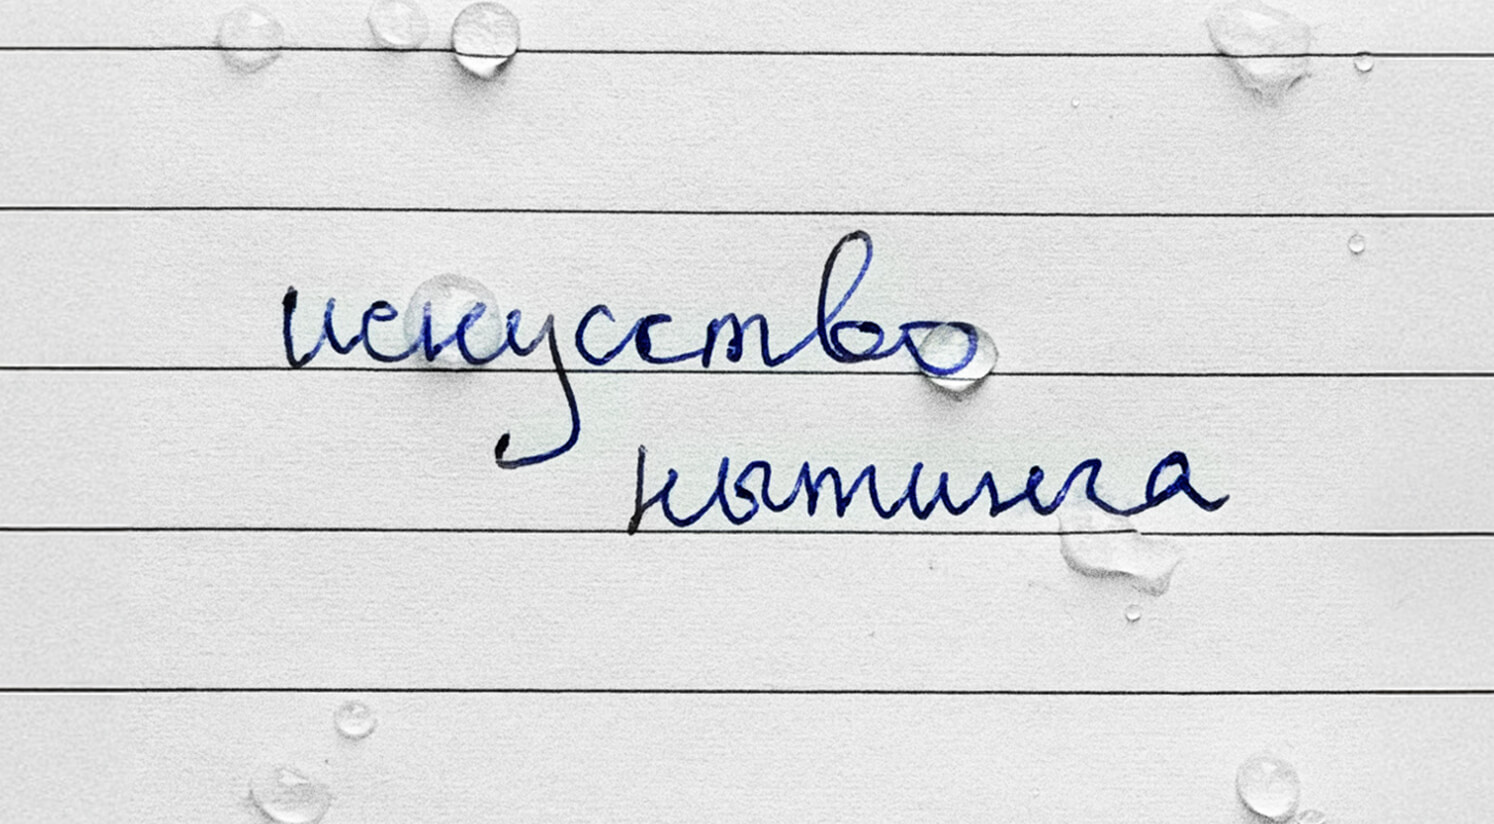 искусство
нытинга